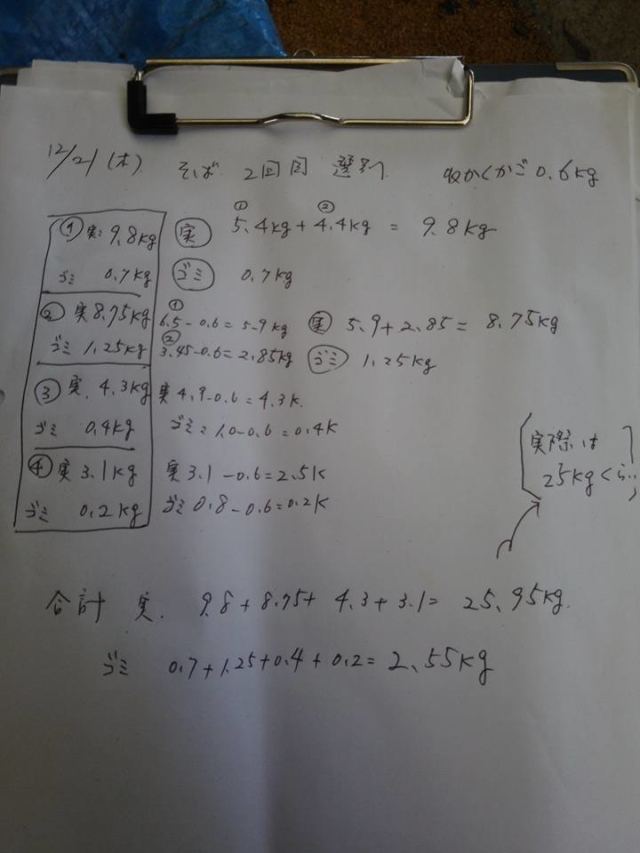 12/21 (木) そば 2回目 選別 収かくかご 0.6kg
① 実: 9.8kg 実 ① 5.4kg + ② 4.4kg = 9.8kg
ゴミ 0.7kg ゴミ 0.7kg
② 実 8.75kg ① 6.5-0.6=5.9kg 実 5.9+2.85= 8.75kg
ゴミ 1.25kg ② 3.45-0.6=2.85kg ゴミ 1.25kg
③ 実. 4.3kg 実 4.9-0.6=4.3K.
ゴミ 0.4kg ゴミ: 1.0-0.6=0.4K
④ 実 3.1kg 実 3.1-0.6=2.5K
ゴミ 0.2kg ゴミ 0.8-0.6=0.2K
実際は
25kgくら…
合計 実. 9.8+8.75+ 4.3+3.1= 25.95kg.
ゴミ 0.7+1.25+0.4+0.2= 2.55kg